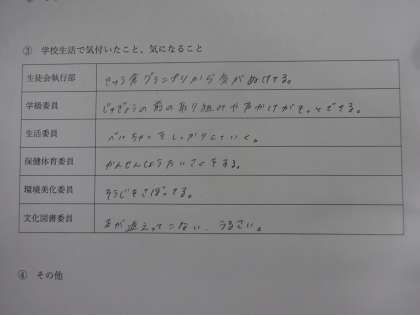 ③ 学校生活で気付いたこと、気になること
生徒会執行部 きゅう食グランプリから気がぬけてる。
学級委員 じゅぎょうの前の取り組みや声かけがもっとできる。
生活委員 をしっかりしていく。
保健体育委員 かんせんしょうたいさくをする。
環境美化委員 そうじをさぼってる。
文化図書委員 本が返ってこない、うるさい。
④ その他